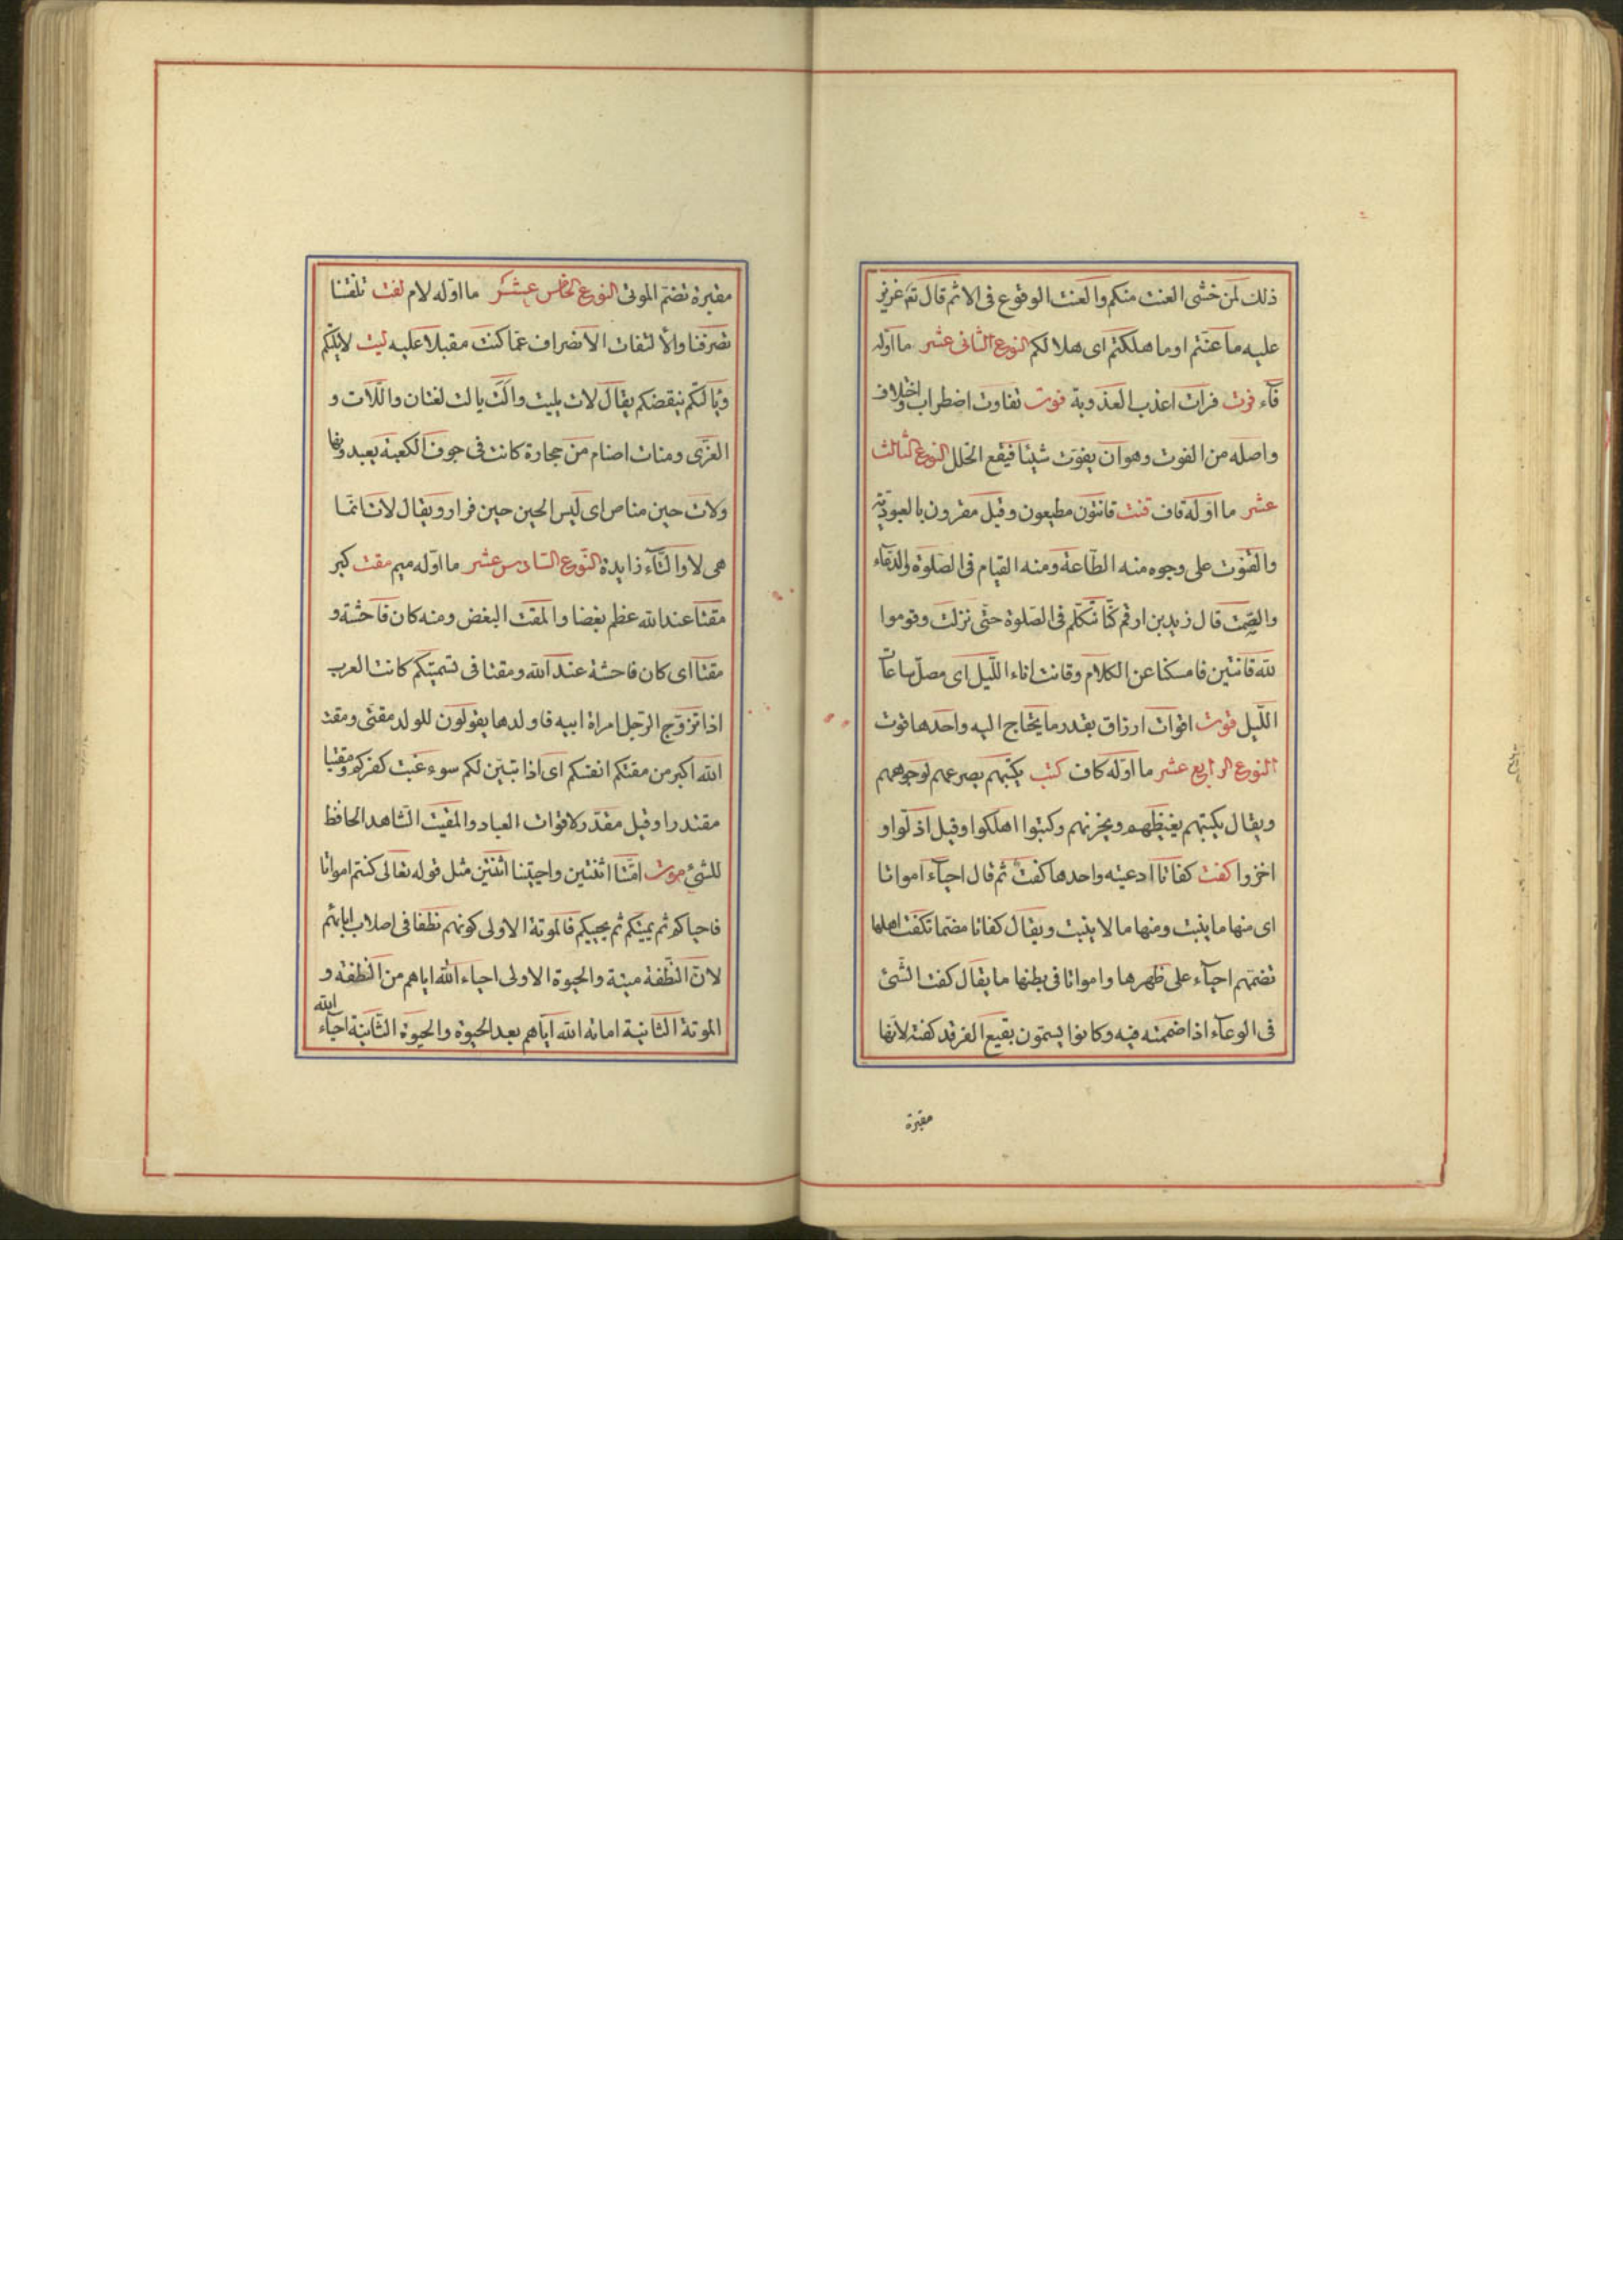 ذلك لمن خشى العنت منكم والعنت الوقوع فى الاثم قال تع عزيز
عليه ما عنتم اى ما هلكتم اى هلاككم النوع الثانى عشر ما اوله
فآء فرت فرات اعذب العذوبة فوت تفاوت اضطراب واختلاف
واصله من الفوت وهو ان يفوت شيئا فيقع الخلل النوع الثالث
عشر ما اوله قاف قنت قانتون مطيعون وقيل مقرون بالعبودية
والقنوت على وجوه منه الطاعة ومنه القيام فى الصلوة والدعاء
والصمت قال زيد بن ارقم كنا نتكلم فى الصلوة حتى نزلت وقوموا
لله قانتين فامسكنا عن الكلام وقانت اناء الليل اى مصل ساعات
الليل قوت اقوات ارزاق بقدر ما يحتاج اليه واحدها قوت
النوع الرابع عشر ما اوله كاف كبت يكبتهم يصرعهم لوجوههم
ويقال يكبتهم يغيظهم ويحزنهم وكبتوا اهلكوا وقيل اذلوا و
اخزوا كفت كفاتا ادعيته واحدها كفت ثم قال احيآء امواتا
اى منها ما ينبت ومنها ما لا ينبت ويقال كفاتا مضما تكفت اهلها
تضمهم احيآء على ظهرها وامواتا فى بطنها ما يقال كفت الشئ
فى الوعآء اذا ضممته فيه وكانوا يسمون بقيع الغرقد كفتة لانها
مقبرة
مقبرة تضم الموتى النوع الخامس عشر ما اوله لام لفت تلفتنا
تصرفنا والالتفات الانصراف عما كنت مقبلا عليه ليت لا يلتكم
ويألتكم ينقصكم يقال لات يليت والت يالت لغتان واللات و
العزى ومنات اصنام من حجارة كانت فى جوف الكعبة يعبدونها
ولات حين مناص اى ليس الحين حين فرار ويقال لات انما
هى لا والتآء زايدة النوع السادس عشر ما اوله ميم مقت كبر
مقتا عند الله عظم بغضا والمقت البغض ومنه كان فاحشة و
مقتا اى كان فاحشة عند الله ومقتا فى تسميتكم كانت العرب
اذا تزوج الرجل امراة ابيه فاولدها يقولون للولد مقتى ومقت
الله اكبر من مقتكم انفسكم اى اذا تبين لكم سوء غبت كفركم ومقيتا
مقتدرا وقيل مقدر لاقوات العباد والمقيت الشاهد الحافظ
للشئ موت امتنا اثنتين واحييتنا اثنتين مثل قوله تعالى كنتم امواتا
فاحياكم ثم يميتكم ثم يحييكم فالموتة الاولى كونهم نطفا فى اصلاب ابائهم
لان النطفة ميتة والحيوة الاولى احياء الله اياهم من النطفة و
الموتة الثانية اماته الله اياهم بعد الحيوة والحيوة الثانية احيآء الله